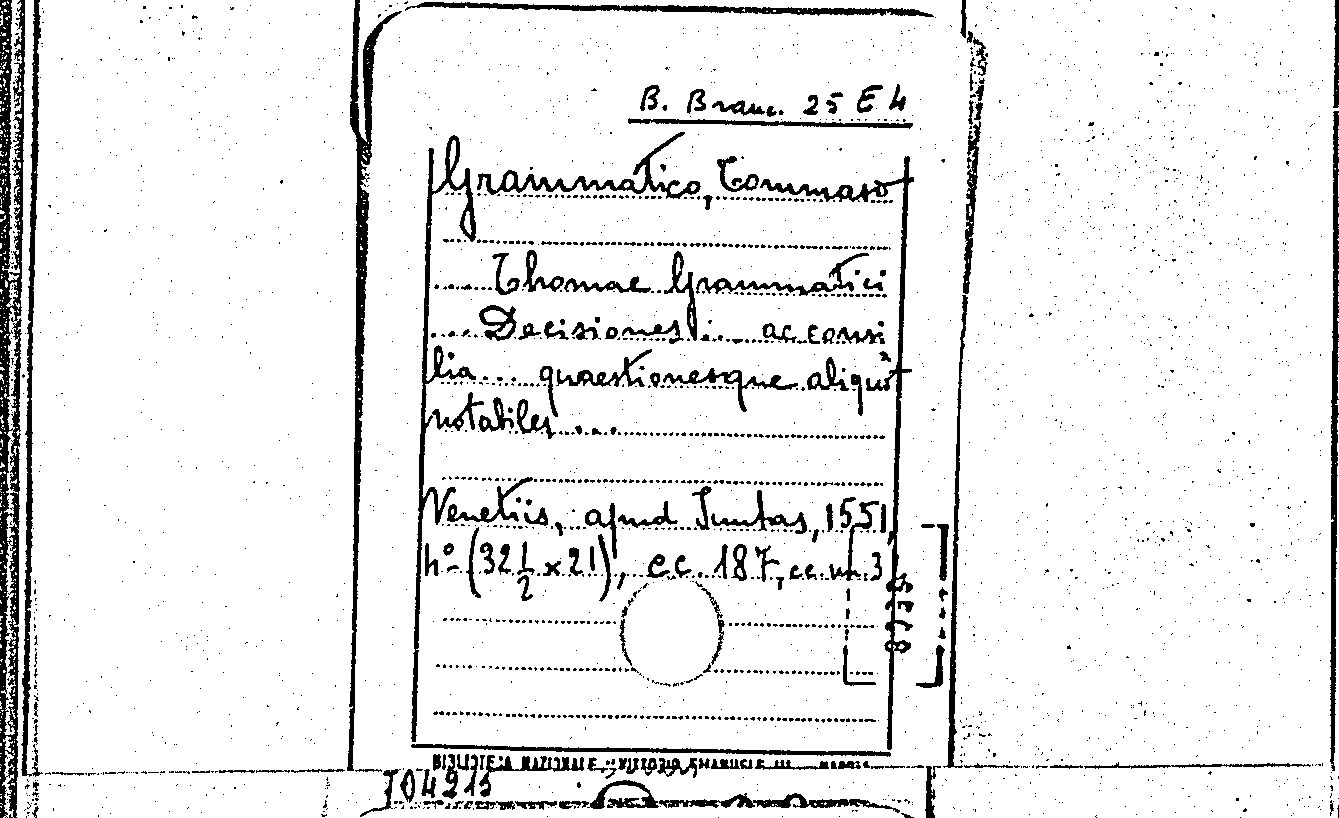 B. Branc. 25 E 4
Grammatico, Tommaso
.... Thomae Grammatici
.... Decisiones ... ac consi
lia ... quaestionesque aliquòt
notabiles ...
Venetiis, apud Iuntas, 1551,
4º (32 1/2 x 21), cc. 187, cc. nn. 3
BIBLIOTECA NAZIONALE "VITTORIO EMANUELE III" - NAPOLI
704213